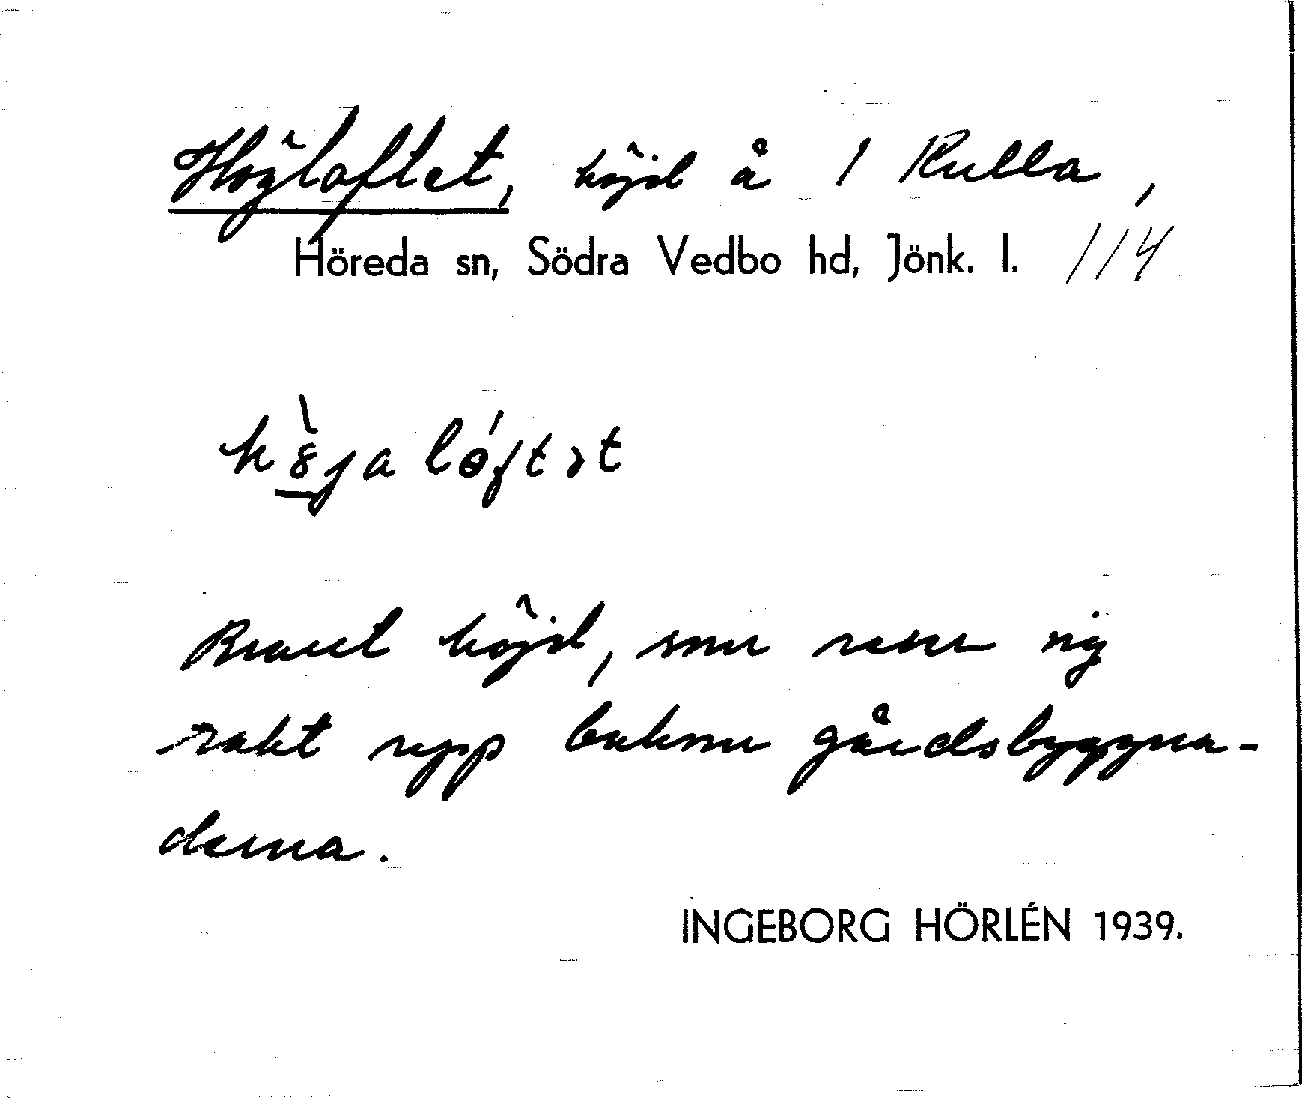 Högloftet, höjd å 1 Kulla,
Höreda sn, Södra Vedbo hd, Jönk. l. 114
Brant höjd, som reser sig
rakt upp bakom gårdsbyggna-
derna.
INGEBORG HÖRLÉN 1939.